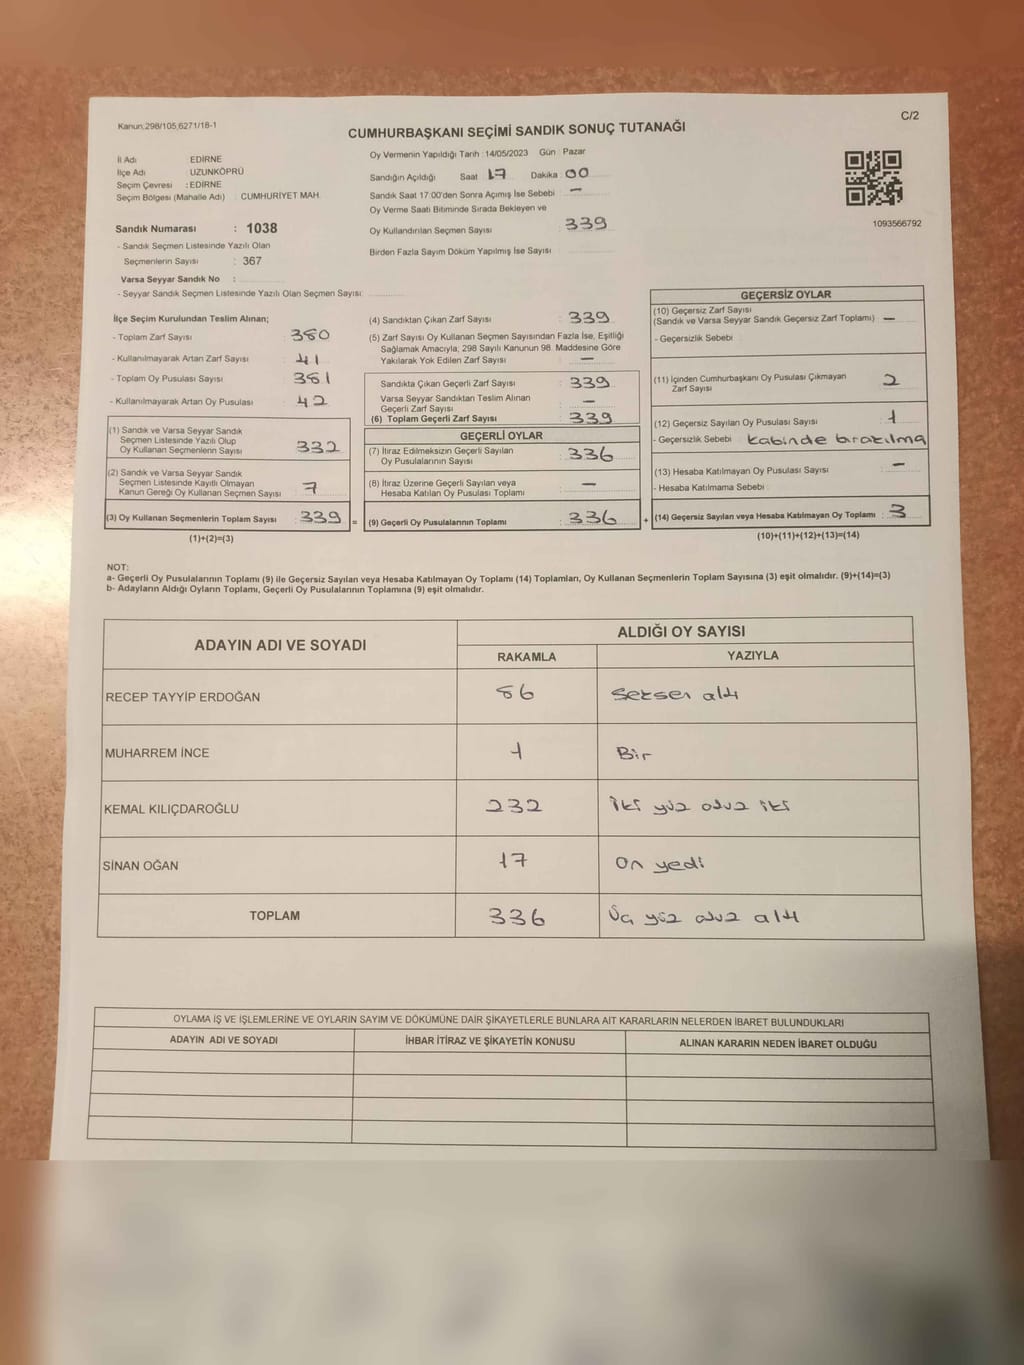 Kanun;298/105,6271/18-1
C/2
CUMHURBAŞKANI SEÇİMİ SANDIK SONUÇ TUTANAĞI
İl Adı EDİRNE
İlçe Adı UZUNKÖPRÜ
Seçim Çevresi : EDİRNE
Seçim Bölgesi (Mahalle Adı) : CUMHURİYET MAH.
Sandık Numarası : 1038
- Sandık Seçmen Listesinde Yazılı Olan
Seçmenlerin Sayısı : 367
Varsa Seyyar Sandık No :
- Seyyar Sandık Seçmen Listesinde Yazılı Olan Seçmen Sayısı:
Oy Vermenin Yapıldığı Tarih : 14/05/2023 Gün : Pazar
Sandığın Açıldığı Saat : 17 Dakika : 00
Sandık Saat 17:00'den Sonra Açımış İse Sebebi : —
Oy Verme Saati Bitiminde Sırada Bekleyen ve
Oy Kullandırılan Seçmen Sayısı : 339
Birden Fazla Sayım Döküm Yapılmış İse Sayısı :
1093566792
İlçe Seçim Kurulundan Teslim Alınan;
- Toplam Zarf Sayısı : 380
- Kullanılmayarak Artan Zarf Sayısı : 41
- Toplam Oy Pusulası Sayısı : 381
- Kullanılmayarak Artan Oy Pusulası : 42
(1) Sandık ve Varsa Seyyar Sandık
Seçmen Listesinde Yazılı Olup
Oy Kullanan Seçmenlerin Sayısı : 332
(2) Sandık ve Varsa Seyyar Sandık
Seçmen Listesinde Kayıtlı Olmayan
Kanun Gereği Oy Kullanan Seçmen Sayısı : 7
(3) Oy Kullanan Seçmenlerin Toplam Sayısı : 339
(1)+(2)=(3)
(4) Sandıktan Çıkan Zarf Sayısı : 339
(5) Zarf Sayısı Oy Kullanan Seçmen Sayısından Fazla İse, Eşitliği
Sağlamak Amacıyla; 298 Sayılı Kanunun 98. Maddesine Göre
Yakılarak Yok Edilen Zarf Sayısı : —
Sandıkta Çıkan Geçerli Zarf Sayısı : 339
Varsa Seyyar Sandıktan Teslim Alınan
Geçerli Zarf Sayısı : —
(6) Toplam Geçerli Zarf Sayısı : 339
GEÇERLİ OYLAR
(7) İtiraz Edilmeksizin Geçerli Sayılan
Oy Pusulalarının Sayısı : 336
(8) İtiraz Üzerine Geçerli Sayılan veya
Hesaba Katılan Oy Pusulası Toplamı : —
= (9) Geçerli Oy Pusulalarının Toplamı : 336 +
GEÇERSİZ OYLAR
(10) Geçersiz Zarf Sayısı
(Sandık ve Varsa Seyyar Sandık Geçersiz Zarf Toplamı) : —
- Geçersizlik Sebebi :
(11) İçinden Cumhurbaşkanı Oy Pusulası Çıkmayan
Zarf Sayısı : 2
(12) Geçersiz Sayılan Oy Pusulası Sayısı : 1
- Geçersizlik Sebebi : kabinde bırakılma
(13) Hesaba Katılmayan Oy Pusulası Sayısı : —
- Hesaba Katılmama Sebebi :
(14) Geçersiz Sayılan veya Hesaba Katılmayan Oy Toplamı : 3
(10)+(11)+(12)+(13)=(14)
NOT:
a- Geçerli Oy Pusulalarının Toplamı (9) ile Geçersiz Sayılan veya Hesaba Katılmayan Oy Toplamı (14) Toplamları, Oy Kullanan Seçmenlerin Toplam Sayısına (3) eşit olmalıdır. (9)+(14)=(3)
b- Adayların Aldığı Oyların Toplamı, Geçerli Oy Pusulalarının Toplamına (9) eşit olmalıdır.
ADAYIN ADI VE SOYADI
ALDIĞI OY SAYISI
RAKAMLA YAZIYLA
RECEP TAYYİP ERDOĞAN 86 Seksen altı
MUHARREM İNCE 1 Bir
KEMAL KILIÇDAROĞLU 232 İki yüz otuz iki
SİNAN OĞAN 17 On yedi
TOPLAM 336 Üç yüz otuz altı
OYLAMA İŞ VE İŞLEMLERİNE VE OYLARIN SAYIM VE DÖKÜMÜNE DAİR ŞİKAYETLERLE BUNLARA AİT KARARLARIN NELERDEN İBARET BULUNDUKLARI
ADAYIN ADI VE SOYADI İHBAR İTİRAZ VE ŞİKAYETİN KONUSU ALINAN KARARIN NEDEN İBARET OLDUĞU